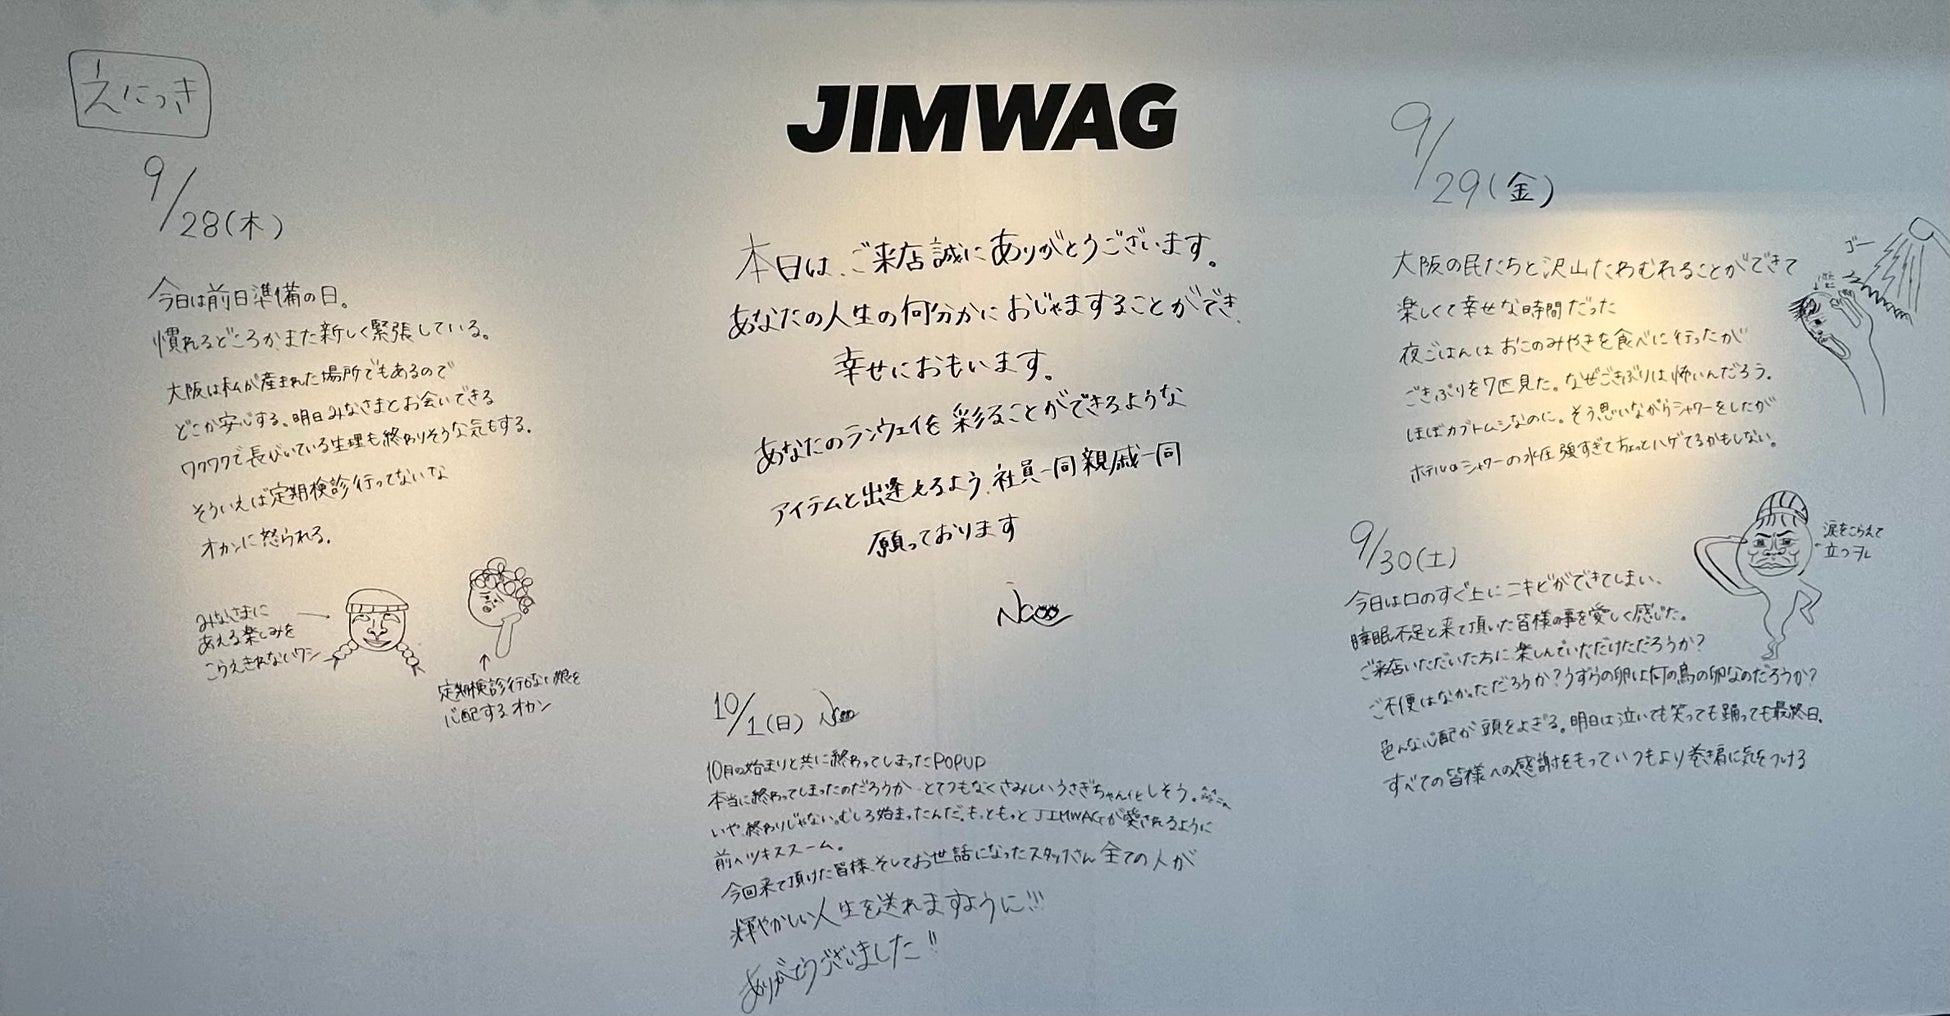 えにっき
9/28(木)
今日は前日準備の日。
慣れるどころか、また新しく緊張している。
大阪は私が産まれた場所でもあるので
どこか安心する。明日みなさまとお会いできる
ワクワクで長びいている生理も終わりそうな気もする。
そういえば定期検診行ってないな
オカンに怒られる。
みなさまに
あえる楽しみを
こらえきれないワシ
定期検診行かない娘を
心配するオカン
JIMWAG
本日は、ご来店誠にありがとうございます。
あなたの人生の何分かにおじゃますることができ、
幸せにおもいます。
あなたのランウェイを彩ることができるような
アイテムと出逢えるよう、社員一同親戚一同
願っております
Naoo
10/1(日) Naoo
10月の始まりと共に終わってしまったPOPUP
本当に終わってしまったのだろうか、とてつもなくさみしいうさぎちゃん化しそう。
いや、終わりじゃない。むしろ始まったんだ。もっともっとJIMWAGが愛されるように
前へツキススーム。
今回来て頂けた皆様、そしてお世話になったスタッフさん全ての人が
輝やかしい人生を送れますように!!!
ありがとうございました!!
9/29(金)
大阪の民たちと沢山たわむれることができて
楽しくて幸せな時間だった
夜ごはんはおこのみやきを食べに行ったが
ごきぶりを7匹見た。なぜごきぶりは怖いんだろう。
ほぼカブトムシなのに。そう思いながらシャワーをしたが
ホテルのシャワーの水圧強すぎてちょっとハゲてるかもしない。
ゴー
9/30(土)
今日は口のすぐ上にニキビができてしまい、
睡眠不足と来て頂いた皆様の事を愛しく感じた。
ご来店いただいた方に楽しんでいただけただろうか?
ご不便はなかっただろうか?うずらの卵は何の鳥の卵なのだろうか?
色んな心配が頭をよぎる。明日は泣いても笑っても踊っても最終日。
すべての皆様への感謝をもっていつもより巻き肩に気をつける
涙をこらえて
立つヲレ